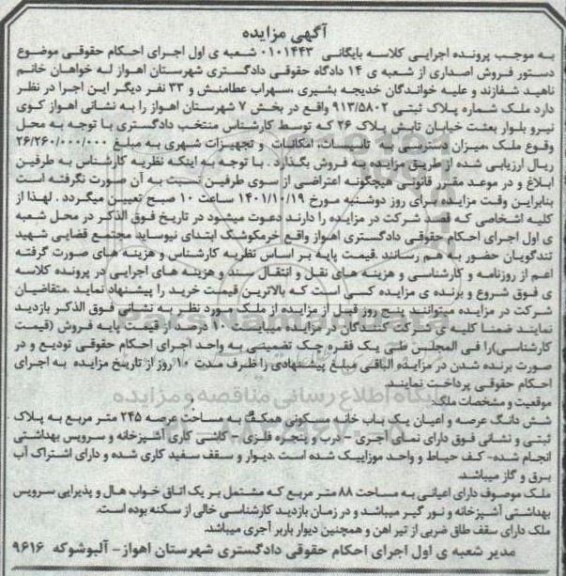 آگهی مزایده
به موجب پرونده اجرایی کلاسه بایگانی ۰۱۰۱۴۴۳ شعبه ی اول اجرای احکام حقوقی موضوع
دستور فروش اصداری از شعبه ی ۱۴ دادگاه حقوقی دادگستری شهرستان اهواز له خواهان خانم
ناهید شفازند و علیه خواندگان خدیجه بشیری ،سهراب عطامنش و ۳۳ نفر دیگر این اجرا در نظر
دارد ملک شماره پلاک ثبتی ۹۱۳/۵۸۰۲ واقع در بخش ۷ شهرستان اهواز را به نشانی اهواز کوی
نیرو بلوار بعثت خیابان تابش پلاک ۲۶ که توسط کارشناس منتخب دادگستری با توجه به محل
وقوع ملک ،میزان دسترسی به تاسیسات، امکانات و تجهیزات شهری به مبلغ ۲۶/۲۶۰/۰۰۰/۰۰۰
ریال ارزیابی شده از طریق مزایده به فروش بگذارد . با توجه به اینکه نظریه کارشناس به طرفین
ابلاغ و در موعد مقرر قانونی هیچگونه اعتراضی از سوی طرفین نسبت به آن صورت نگرفته است
بنابراین وقت مزایده برای روز دوشنبه مورخ ۱۴۰۱/۱۰/۱۹ ساعت ۱۰ صبح تعیین میگردد . لهذا از
کلیه اشخاصی که قصد شرکت در مزایده را دارند دعوت میشود در تاریخ فوق الذکر در محل شعبه
ی اول اجرای احکام حقوقی دادگستری اهواز واقع خرمکوشک ابتدای نیوساید مجتمع قضایی شهید
تندگویان حضور به هم رسانند .قیمت پایه بر اساس نظریه کارشناس و هزینه های صورت گرفته
اعم از روزنامه و کارشناسی و هزینه های نقل و انتقال سند و هزینه های اجرایی در پرونده کلاسه
ی فوق شروع و برنده ی مزایده کسی است که بالاترین قیمت خرید را پیشنهاد نماید .متقاضیان
شرکت در مزایده میتوانند پنج روز قبل از مزایده از ملک مورد نظر به نشانی فوق الذکر بازدید
نمایند ضمنا کلیه ی شرکت کنندگان در مزایده میبایست ۱۰ درصد از قیمت پایه فروش (قیمت
کارشناسی)را فی المجلس طی یک فقره چک تضمینی به واحد اجرای احکام حقوقی تودیع و در
صورت برنده شدن در مزایده الباقی مبلغ پیشنهادی را ظرف مدت ۱۰ روز از تاریخ مزایده به اجرای
احکام حقوقی پرداخت نمایند.
موقعیت و مشخصات ملک:
شش دانگ عرصه و اعیان یک باب خانه مسکونی همکف به مساحت عرصه ۲۴۵ متر مربع به پلاک
ثبتی و نشانی فوق دارای نمای آجری – درب و پنجره فلزی – کاشی کاری آشپزخانه و سرویس بهداشتی
انجام شده– کف حیاط و واحد موزاییک شده است .دیوار و سقف سفید کاری شده و دارای اشتراک آب
برق و گاز میباشد.
ملک موصوف دارای اعیانی به مساحت ۸۸ متر مربع که مشتمل بر یک اتاق خواب هال و پذیرایی سرویس
بهداشتی آشپزخانه و نور گیر میباشد و در زمان بازدید کارشناسی خالی از سکنه بوده است.
ملک دارای سقف طاق ضربی از تیر آهن و همچنین دیوار باربر آجری میباشد.
مدیر شعبه ی اول اجرای احکام حقوقی دادگستری شهرستان اهواز– آلبوشوکه ۹۶۱۶